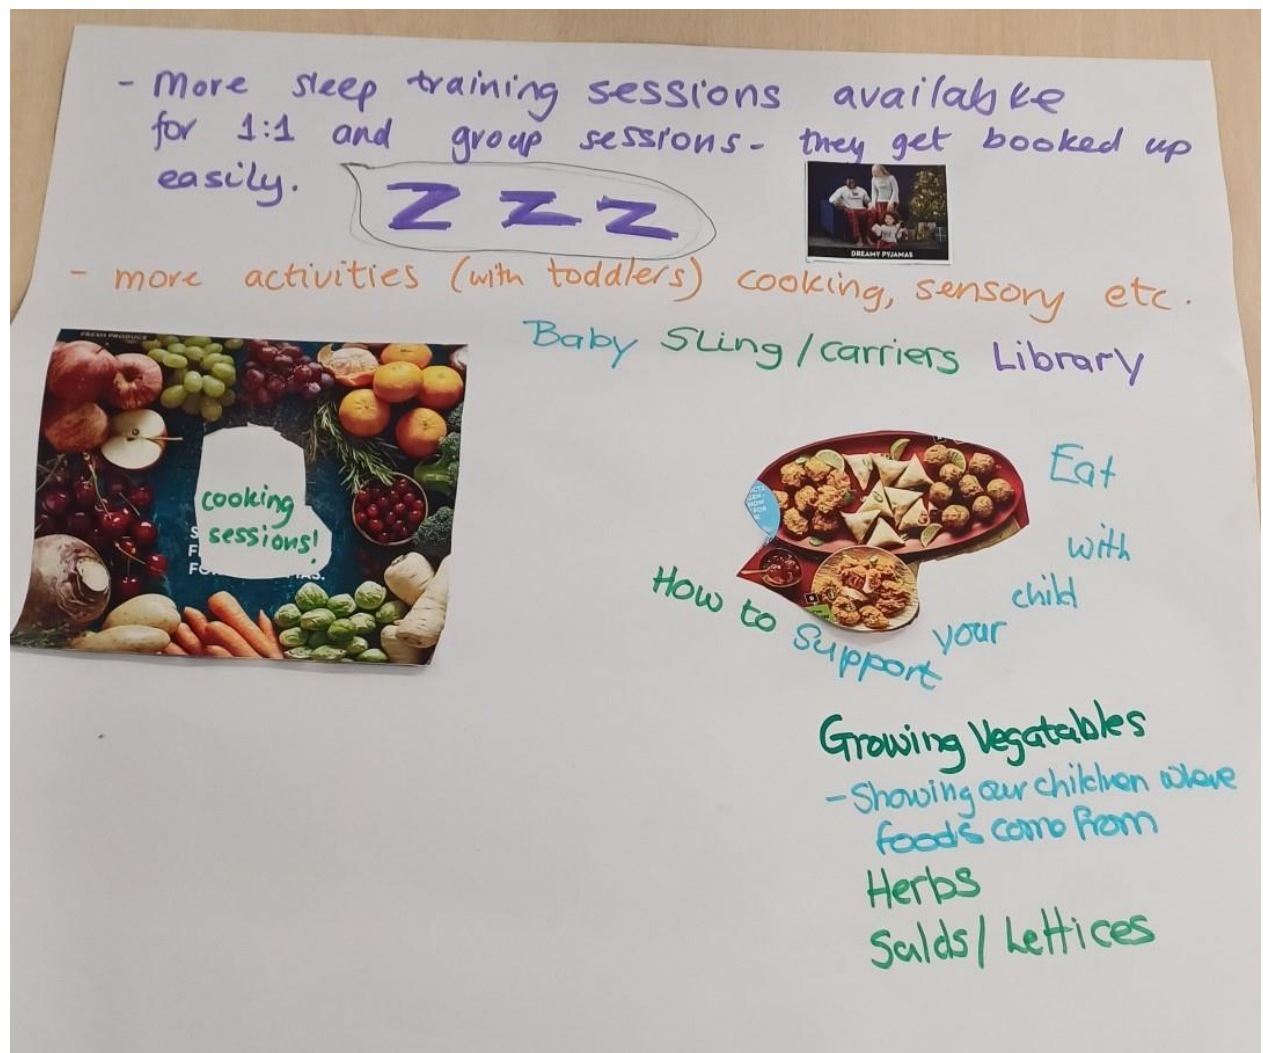 - More sleep training sessions availabke
for 1:1 and group sessions - they get booked up
easily.
Z Z Z
DREAMY PYJAMAS
- more activities (with toddlers) cooking, sensory etc.
Baby Sling/carriers Library
FRESH PRODUCE
cooking
sessions!
How to Support your child
with
Eat
Growing Vegatables
- Showing our children where
foods come from
Herbs
Salds/ Lettices